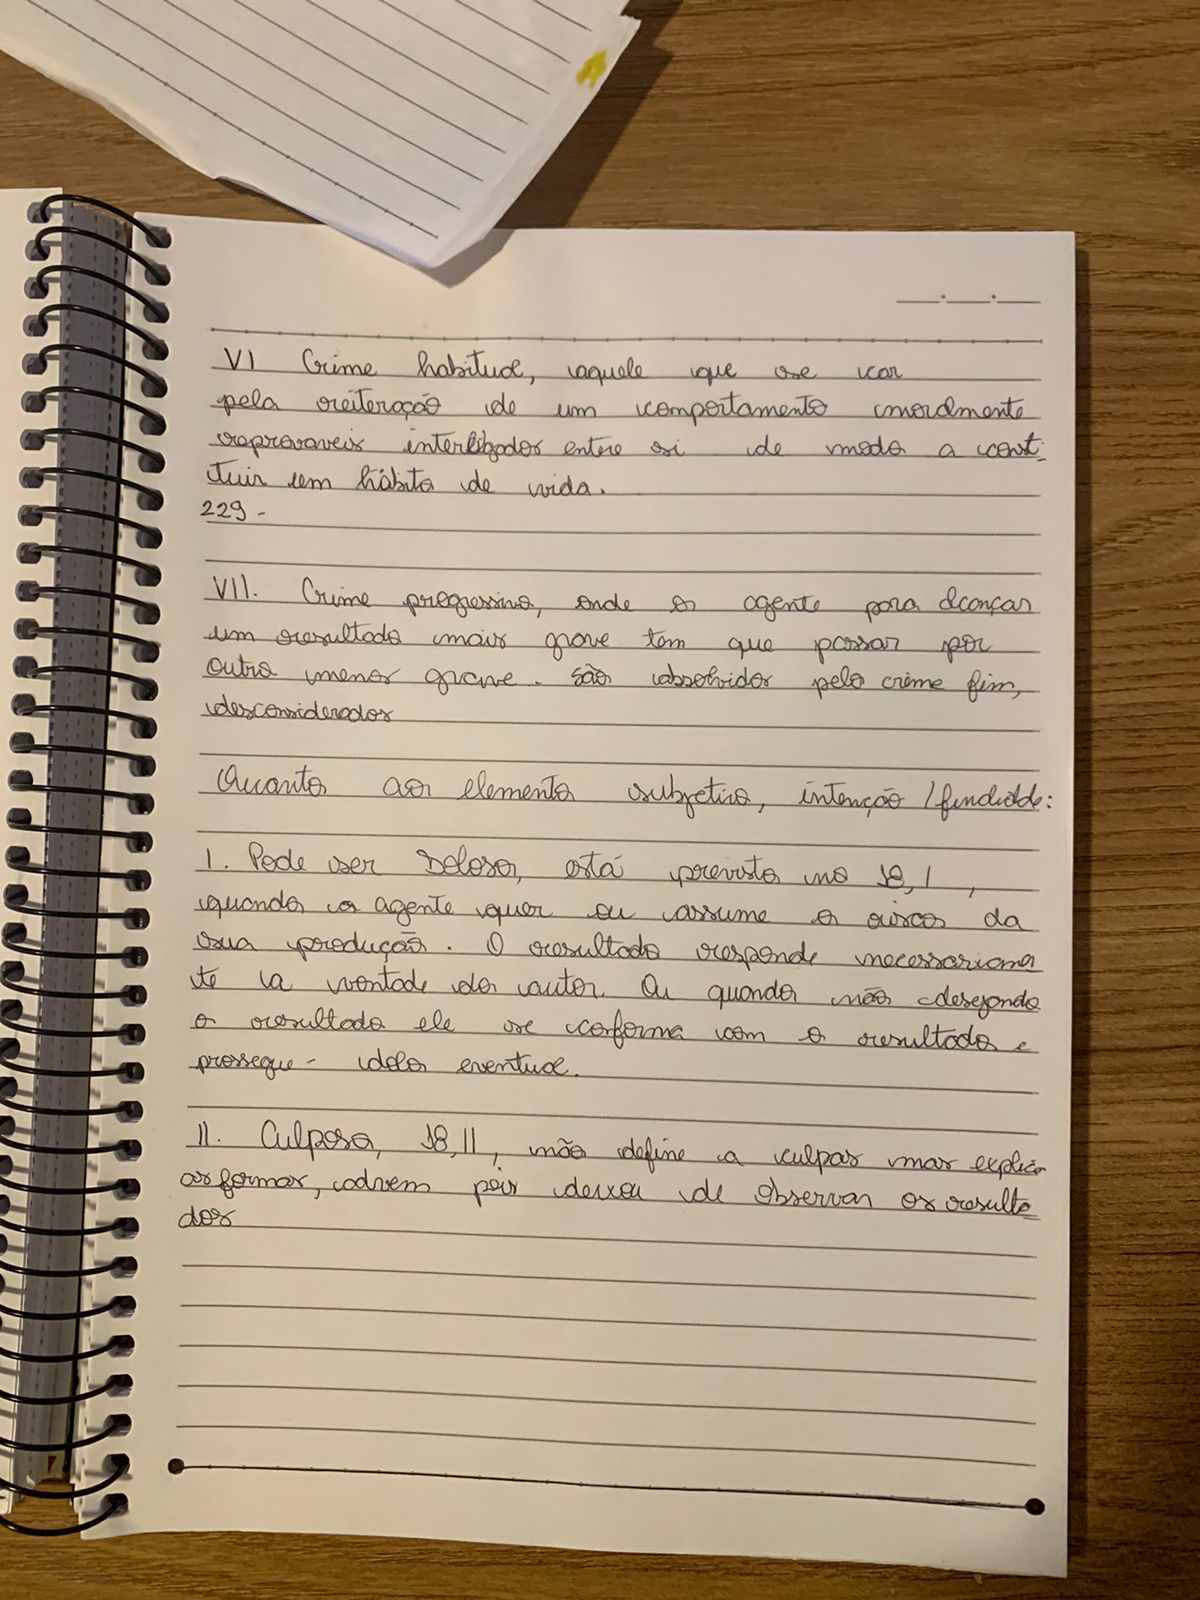 VI Crime habitual, aquele que se car
pela reiteração de um comportamento moralmente
reprovaveis interligados entre si de modo a consti-
tuir um hábito de vida.
229 -
VII. Crime progressivo, onde o agente para alcançar
um resultado mais grave tem que passar por
outro menor grave. São absolvidos pelo crime fim,
desconsiderados
Quanto ao elemento subjetivo, intenção / finalidade:
I. Pode ser Doloso, está previsto no 18, I,
quando o agente quer ou assume o risco da
sua produção. O resultado responde necessariamen
te a vontade do autor. Ou quando não desejando
o resultado ele se conforma com o resultado e
prossegue - dolo eventual.
II. Culposo, 18, II, não define a culpa mas explica
as formas, advem pois deixou de observar os resulta
dos